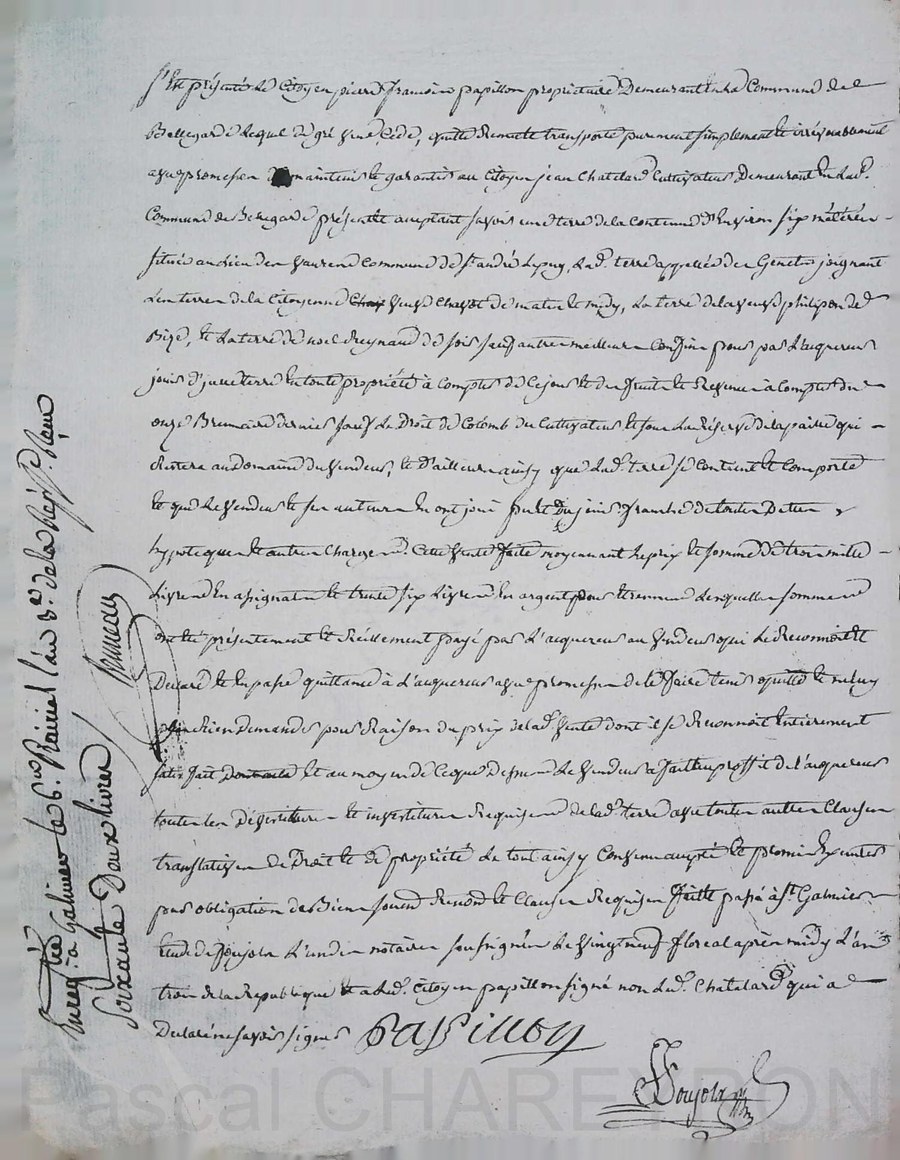 S'est présenté le Citoyen pierre francois papillon proprietaire Demeurant en la Commune de
Bellegarde lequel de gré vend, Cede, quitte Remet et transporte purement simplement et irrévocablement
avec promesse de maintenir et garantir au Citoyen jean Chatelard Cultivateur Demeurant en lad.
Commune de Bellegarde présent et acceptant savoir une terre de la Contenue d'Environ six métérées
située au lieu des Commune de St. andré Le puy, Lad. terre appellée des Genets joignant
Les terres de la Citoyenne veuve de matin et midy, La terre de la veuve philipon de
Bize, et La terre de noel Reynaud de soir sauf autres meilleurs Confins pour par L'acquereur
jouir d'icelle terre en toute propriété à Compter de Ce jour et des fruits et Revenus à Compter du
onze Brumaire dernier sauf Le Droit de Colomb du Cultivateur et sous La Réserve de la paille qui
Restera au Domaine du Vendeur, et D'ailleurs ainsy que Lad. terre se Contient et Comporte
et que Le Vendeur et ses auteurs en ont joui franche de toutes Dettes
hypoteques et autres Charges. Cette Vente faite moyennant Le prix et somme de trois mille
Livres En assignats et trente six Livres En argent pour Etrennes Lesquelles sommes
ont été présentement et Réellement payé par L'acquereur au Vendeur qui Le Reconnoit et
Declare et En passe quittance à L'acquereur avec promesse de Le faire tenir quitte et ne luy
Rien Demander pour Raison du prix de lad. Vente dont il se Reconnoit Entierement
satisfait et au moyen de Ce que Dessus Le Vendeur a fait au proffit de L'acquereur
toutes Les Dévestitures et investitures Requises de lad. terre avec toutes autres Clauses
translatives de Droit et de propriété Le tout ainsy Convenu accepté et promis Executer
par obligation de Biens soumis Renoncé et Clauses Requises fait et passé à St. Galmier
Etude de Soujols L'un des notaires soussignés Le Vingt neuf floreal après midy L'an
trois de la Republique et a Led. Citoyen papillon signé non Led. Chatelard qui a
Declaré ne savoir signer Papillon
Soujols
Enregistré à Galmier le 6.e Prairial l'an 3.e de la Rép. Reçu
soixante Deux livres